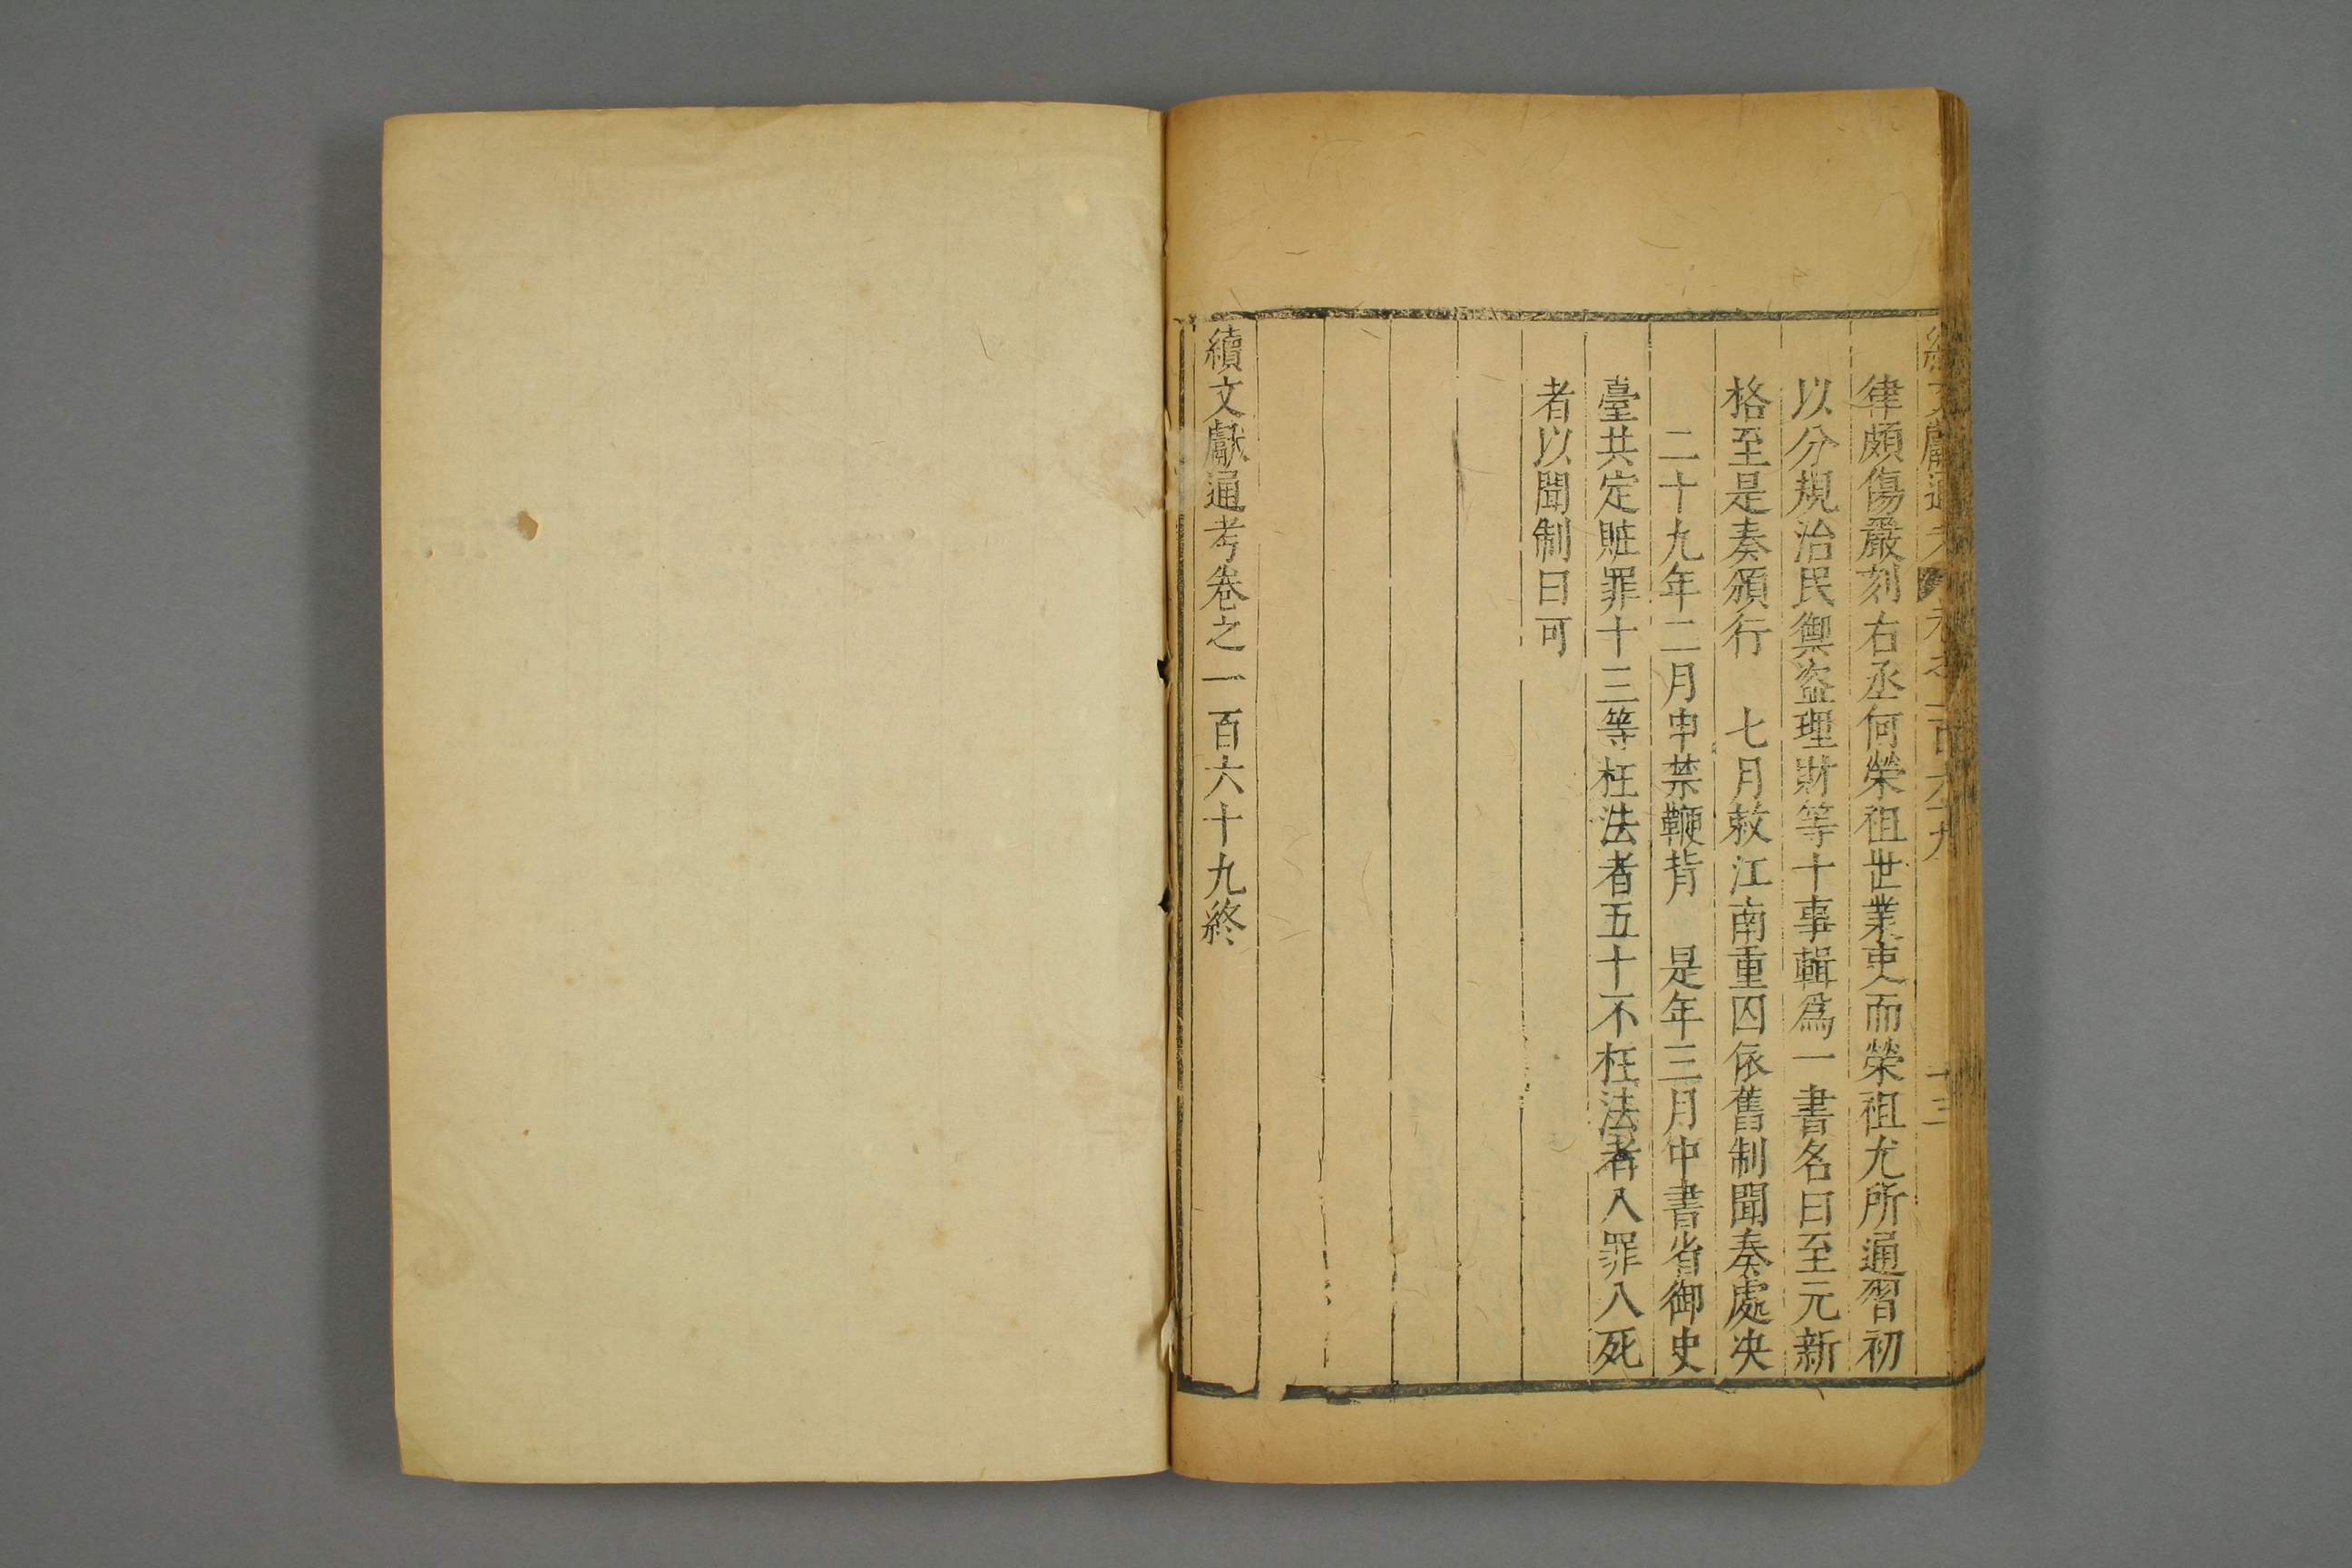 續文獻通考 卷之一百六十九 十三
律頗傷嚴刻右丞何榮祖世業吏而榮祖尤所通習初
以公規治民禦盜理財等十事輯爲一書名曰至元新
格至是奏頒行 七月敕江南重囚依舊制聞奏處决
二十九年二月申禁鞭背 是年三月中書省御史
臺共定賍罪十三等枉法者五十不枉法者八罪入死
者以聞制曰可
續文獻通考卷之一百六十九終